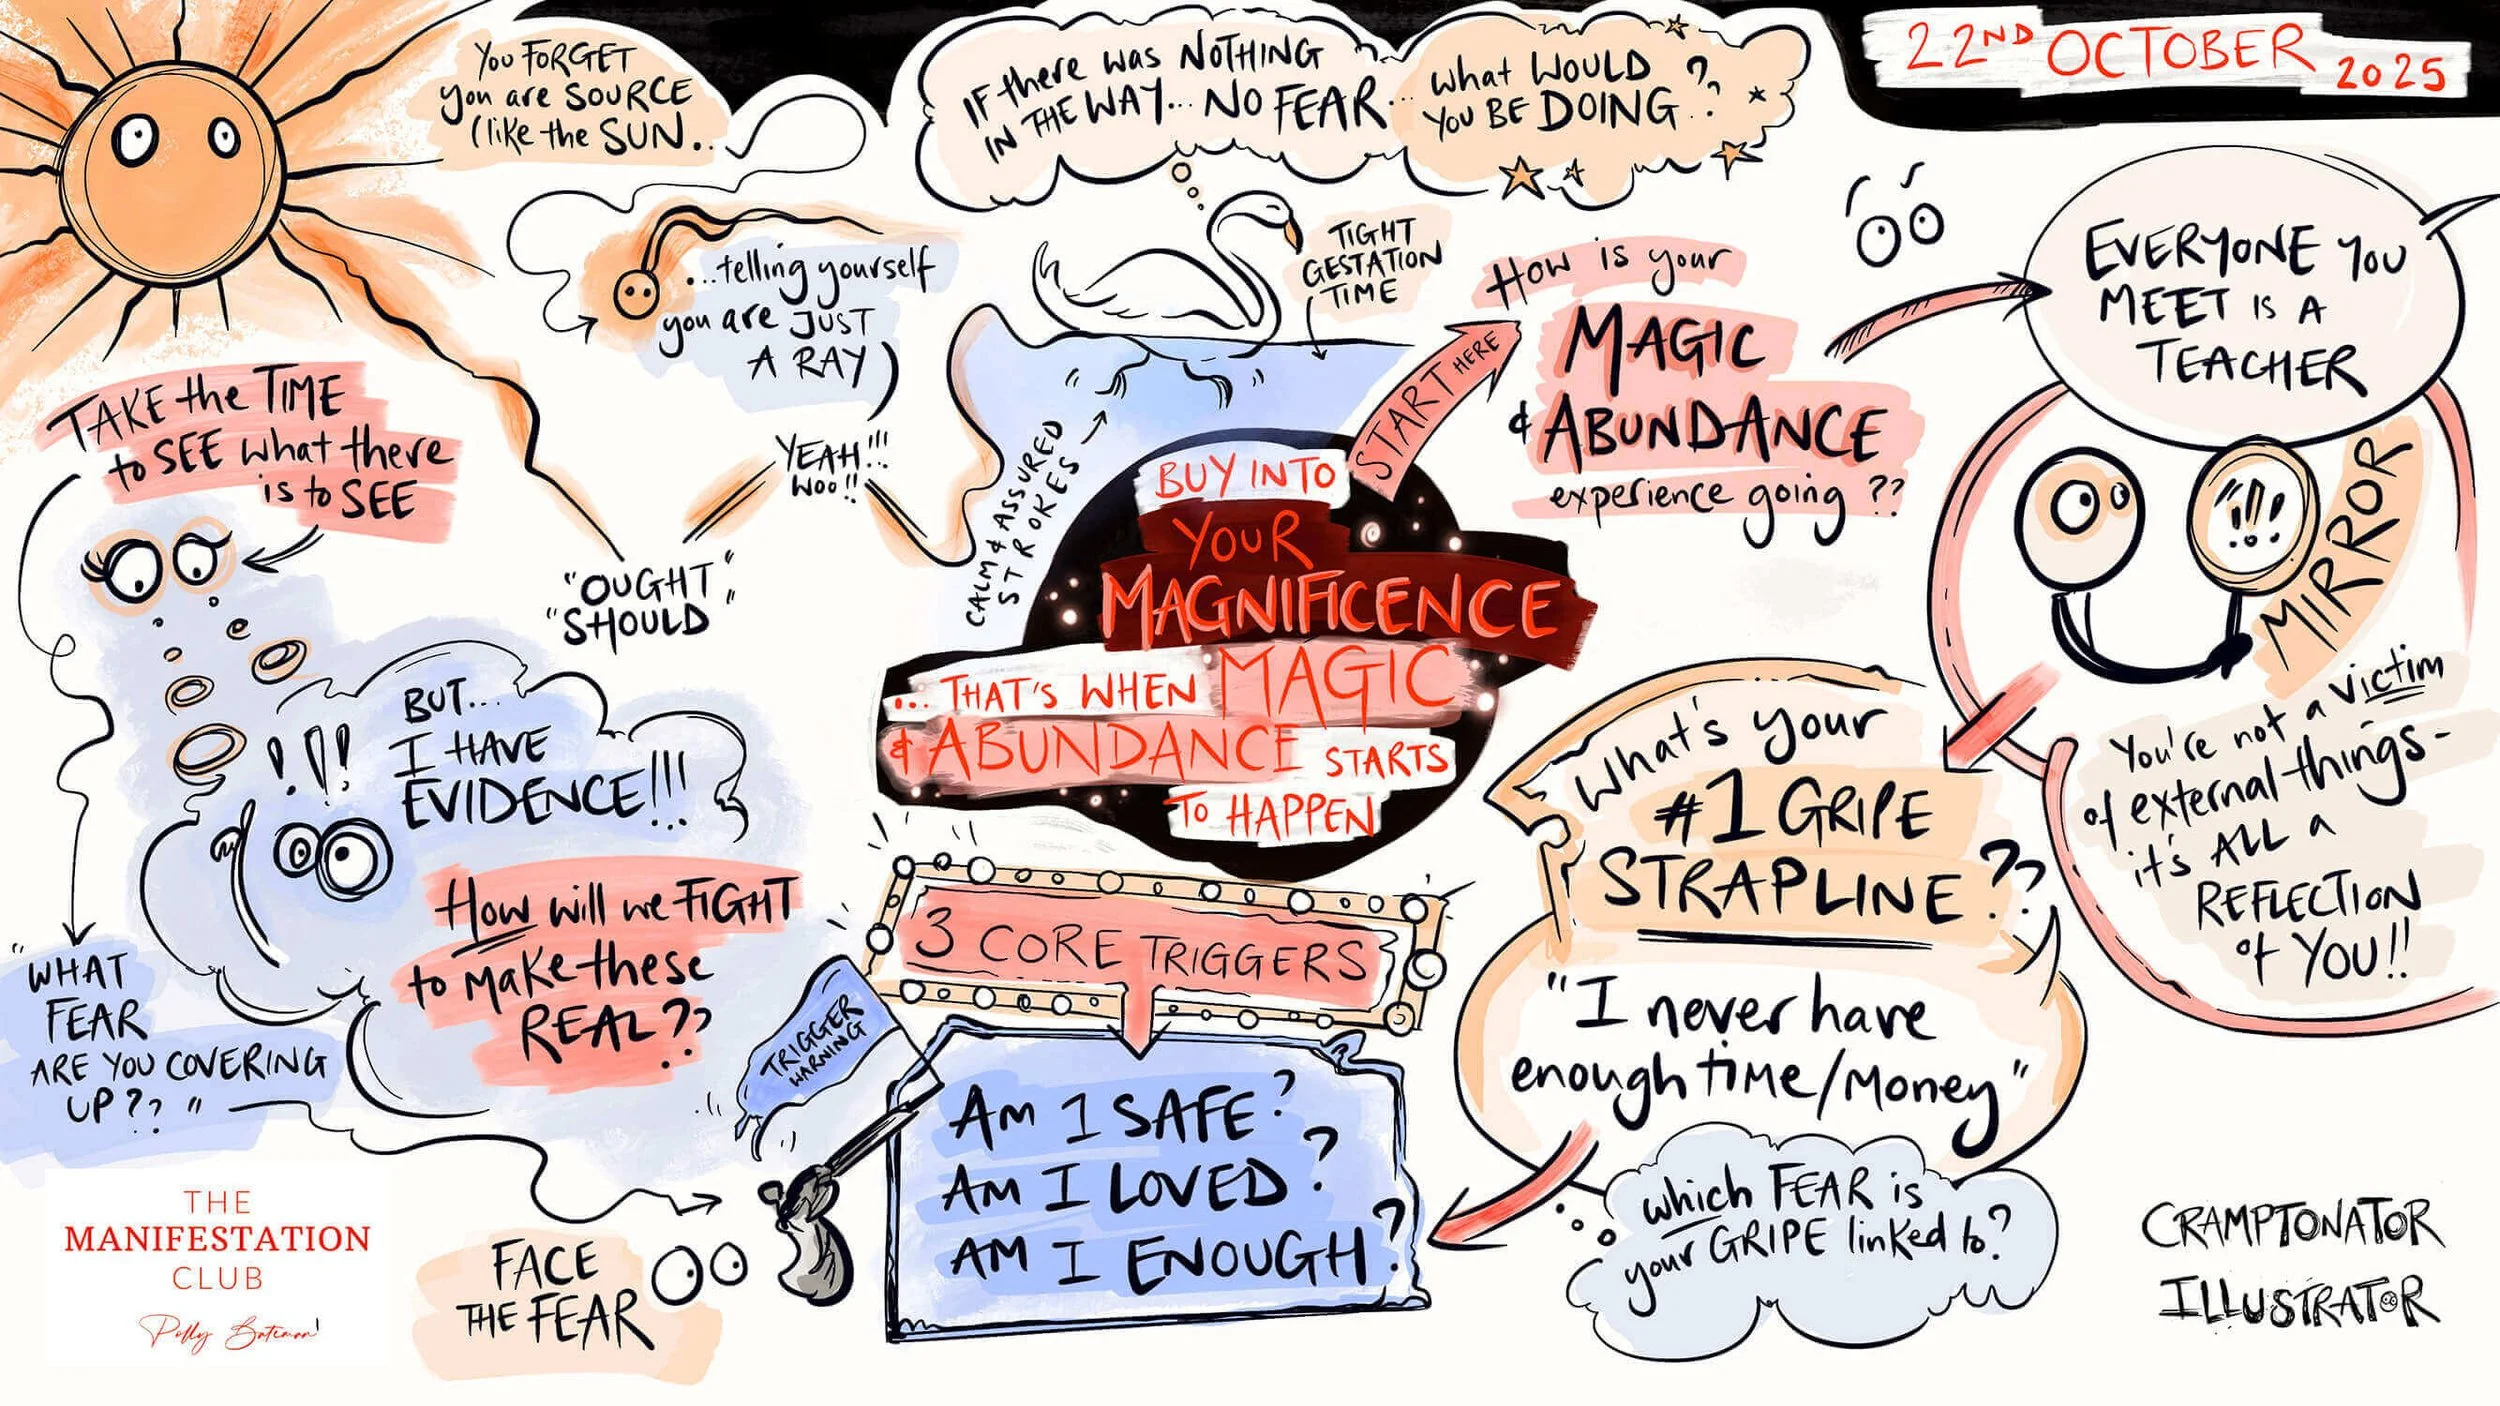 22ND OCTOBER 2025
YOU FORGET
you are SOURCE
(like the SUN..
...telling yourself
you are JUST
A RAY)
IF there was NOTHING
IN THE WAY... NO FEAR...
What WOULD
YOU BE DOING??
TIGHT
GESTATION
TIME
CALM & ASSURED
STROKES
START HERE
How is your
MAGIC
& ABUNDANCE
experience going ??
EVERYONE YOU
MEET IS A
TEACHER
MIRROR
You're not a victim
of external things-
it's ALL a
REFLECTION
of YOU!!
TAKE the TIME
to SEE what there
is to SEE
YEAH!!!
WOO!!
"OUGHT"
"SHOULD"
BUY INTO
YOUR
MAGNIFICENCE
... THAT'S WHEN MAGIC
& ABUNDANCE STARTS
TO HAPPEN
What's your
#1 GRIPE
STRAPLINE??
"I never have
enough time/money"
which FEAR is
your GRIPE linked to?
!!!
BUT...
I HAVE
EVIDENCE!!!
How will we FIGHT
to make these
REAL??
"WHAT
FEAR
ARE YOU COVERING
UP??"
3 CORE TRIGGERS
TRIGGER
WARNING
AM I SAFE?
AM I LOVED?
AM I ENOUGH?
FACE
THE FEAR
THE
MANIFESTATION
CLUB
Polly Bateman
CRAMPTONATOR
ILLUSTRATOR